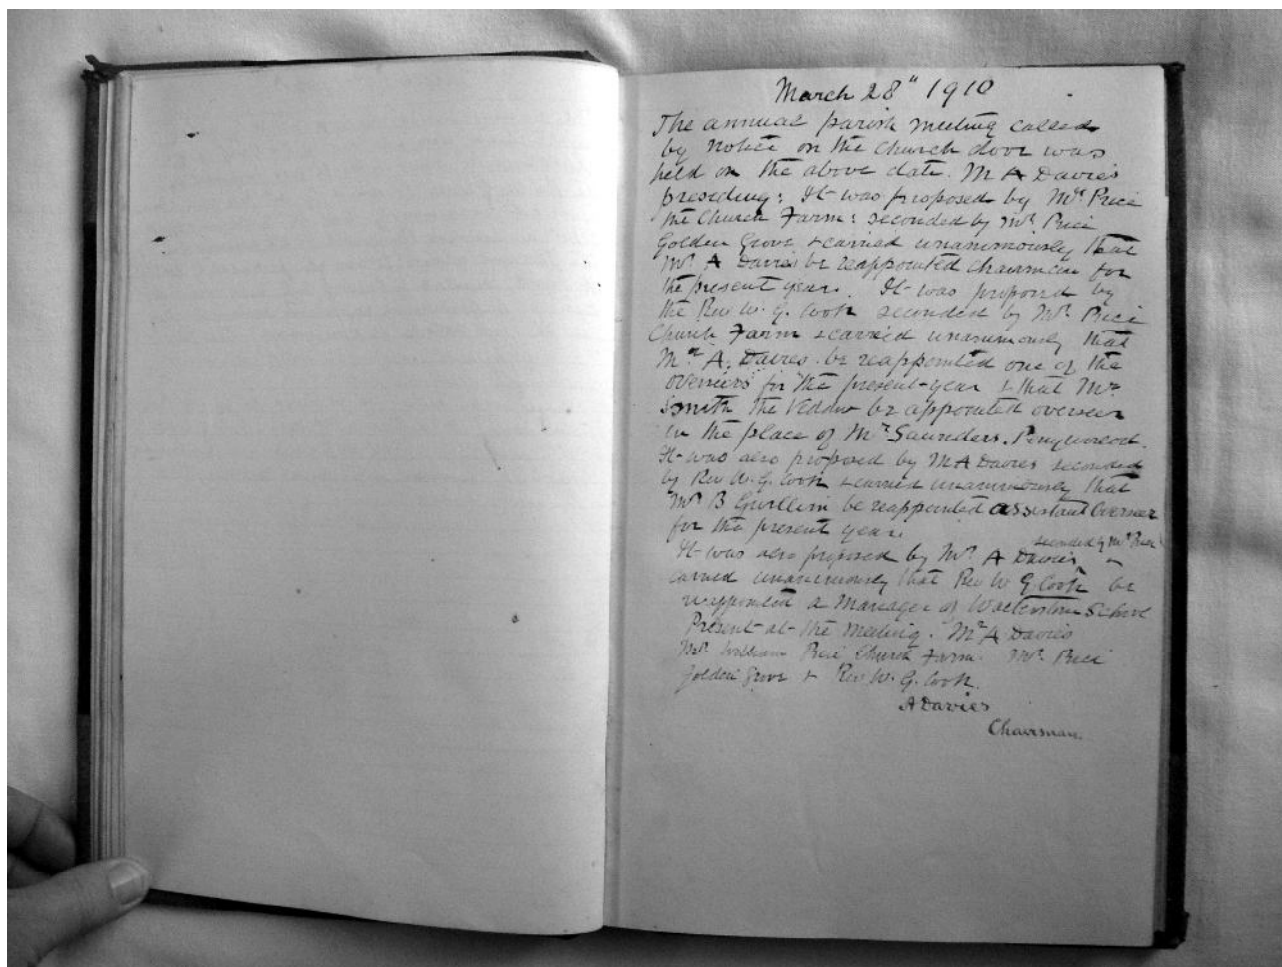 March 28" 1910
The annual parish meeting called
by notice on the Church door was
held on the above date. Mr A Davies
presiding: It was proposed by Mr. Price
the Church Farm: seconded by Mr. Price
Golden Grove & carried unanimously that
Mr. A Davies be reappointed chairman for
the present year. It was proposed by
the Rev W. G. Cook seconded by Mr. Price
Church Farm & carried unanimously that
Mr. A. Davies be reappointed one of the
overseers for the present year & that Mr.
Smith the Veddw be appointed overseer
in the place of Mr. Saunders.
It was also proposed by Mr A Davies seconded
by Rev W. G. Cook & carried unanimously that
Mr. B Gwillim be reappointed assistant Overseer
for the present year.
seconded by Mr. Price
It was also proposed by Mr. A Davies &
carried unanimously that Rev W G. Cook be
reappointed a Manager of Walterstone School
Present at the Meeting. Mr. A Davies
Mr. William Price Church Farm. Mr. Price
Golden Grove & Rev W. G. Cook.
A Davies
Chairman.